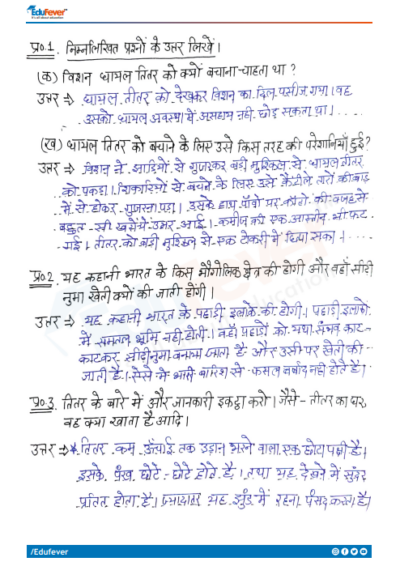 EduFever
प्र०1. निम्नलिखित प्रश्नों के उत्तर लिखें।
(क) बिशन घायल तितर को क्यों बचाना चाहता था ?
उत्तर ⇒ घायल तीतर को देखकर बिशन का दिल पसीज गया। वह
उसको घायल अवस्था में असहाय नहीं छोड़ सकता था।
(ख) घायल तितर को बचाने के लिए उसे किस तरह की परेशानियाँ हुई?
उत्तर ⇒ बिशन ने झाड़ियों से गुजरकर बड़ी मुश्किल से घायल तीतर
को पकड़ा। शिकारियों से बचने के लिए उसे कँटीले तारों की बाड़
में से होकर गुजरना पड़ा। उसके हाथ पाँवों पर काँटों की वजह से
बहुत सी खरोंचें उभर आई। कमीज की एक आस्तीन भी फट
गई। तीतर को बड़ी मुश्किल से एक टोकरी में छिपा सका।
प्र०2. यह कहानी भारत के किस भौगोलिक क्षेत्र की होगी और वहाँ सीढ़ी
नुमा खेती क्यों की जाती होगी।
उत्तर ⇒ यह कहानी भारत के पहाड़ी इलाके की होगी। पहाड़ी इलाकों
में समतल भूमि नहीं होती। वहाँ पहाड़ों को काट-
काटकर सीढ़ीनुमा बनाया जाता है और उसी पर खेती की
जाती है। ऐसे में भारी बारिश से फसल बर्बाद नहीं होते है।
प्र०3. तितर के बारे में और जानकारी इकट्ठा करो। जैसे - तीतर का घर,
वह क्या खाता है आदि।
उत्तर ⇒ * तितर कम ऊँचाई तक उड़ान भरने वाला एक छोटा पक्षी है।
इसके पंख छोटे-छोटे होते है। तथा यह देखने में सुंदर
प्रतित होता है। ज़्यादातर यह झुंड में रहना पसंद करता है।
/Edufever